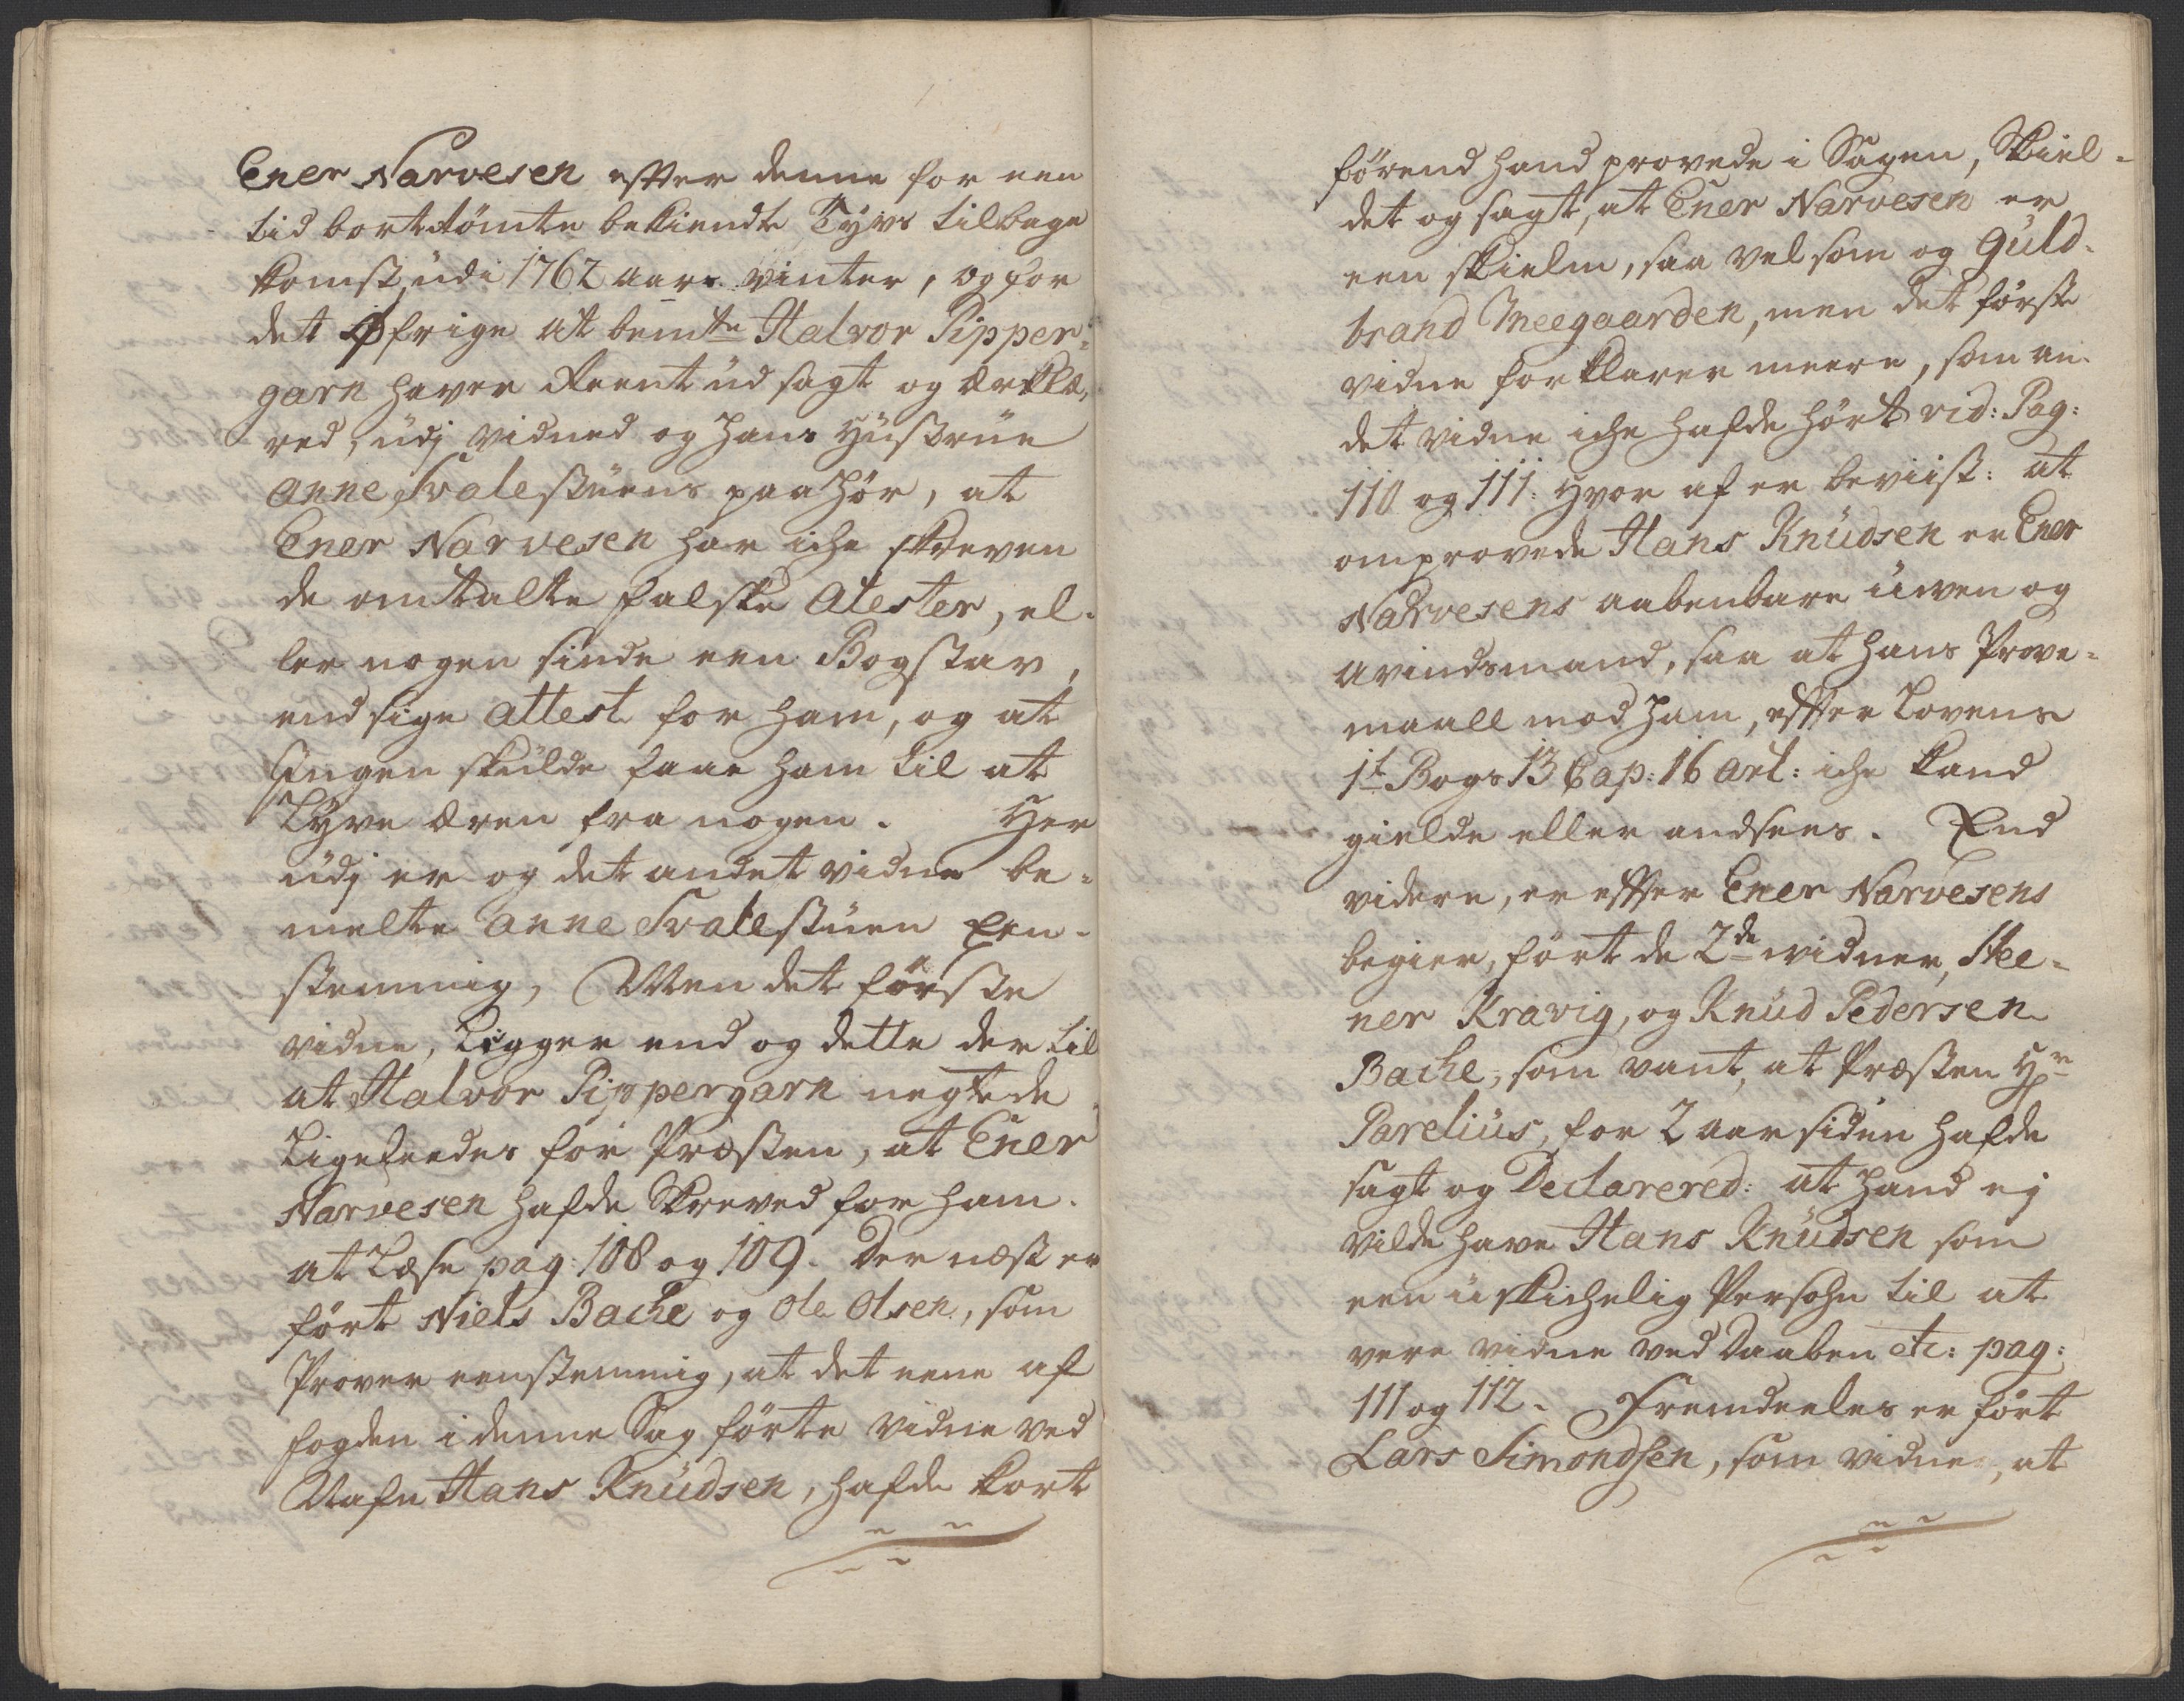 Ener Narvesen efter denne for een
tid bortrømte bekiendte Tÿvs tilbage
komst, udi 1762 aars vinter, og for
det øfrige at bemte Halvor Pipper-
garn haver Reent ud sagt og Erklæ-
red, udj vidned og hans Hustrue
Anne Svalestuens paahør, at
Ener Narvesen har iche skreven
de omtalte falske Atester, el-
ler nogen sinde een Bogstav,
endsige attest for ham, og at
Jngen skulde faae ham til at
Lÿve æren fra nogen. Her
udj er og det andet vidne be-
melte Anne Svalestuen Een-
stemmig, Men det første
vidne, Ligger end og dette der til
at Halvor Pippergarn negtede
Ligeleedes for Præsten, at Ener
Narvesen hafde Skreved for ham.
at Læse pag: 108 og 109. Der næst er
ført Niels Bache og Ole Olsen, som
Prover eenstemmig, at det eene af
fogden i denne Sag førte vidne ved
Nafn Hans Knudsen, hafde kort
førend hand provede i Sagen, Skiel-
det og sagt, at Ener Narvesen er
een skielm, saa vel som og Guld-
brand Meegaarden, men det første
vidne forklarer meere, som an-
det vidne iche hafde hørt vid: Pag:
110 og 111: Hvor af er beviist: at
omprovede Hans Knudsen er Ener
Narvesens aabenbare uwen og
avindsmand, saa at hans Prove-
maall mod ham, efter Lovens
1t Bogs 13 Cap: 16 Art: iche kand
gielde eller andsees. End
videre, er efter Ener Narvesens
begier, ført de 2de vidner, Stee-
ner Kravig, og Knud Pedersen
Bache, som vant, at Præsten Hr
Parelius, for 2 aar siden hafde
sagt og Declarered: at hand ej
vilde have Hans Knudsen som
een uskichelig Persohn til at
være vidne ved Daaben etc: pag:
111 og 112. Fremdeeles er ført
Lars Simondsen, som vidner, at